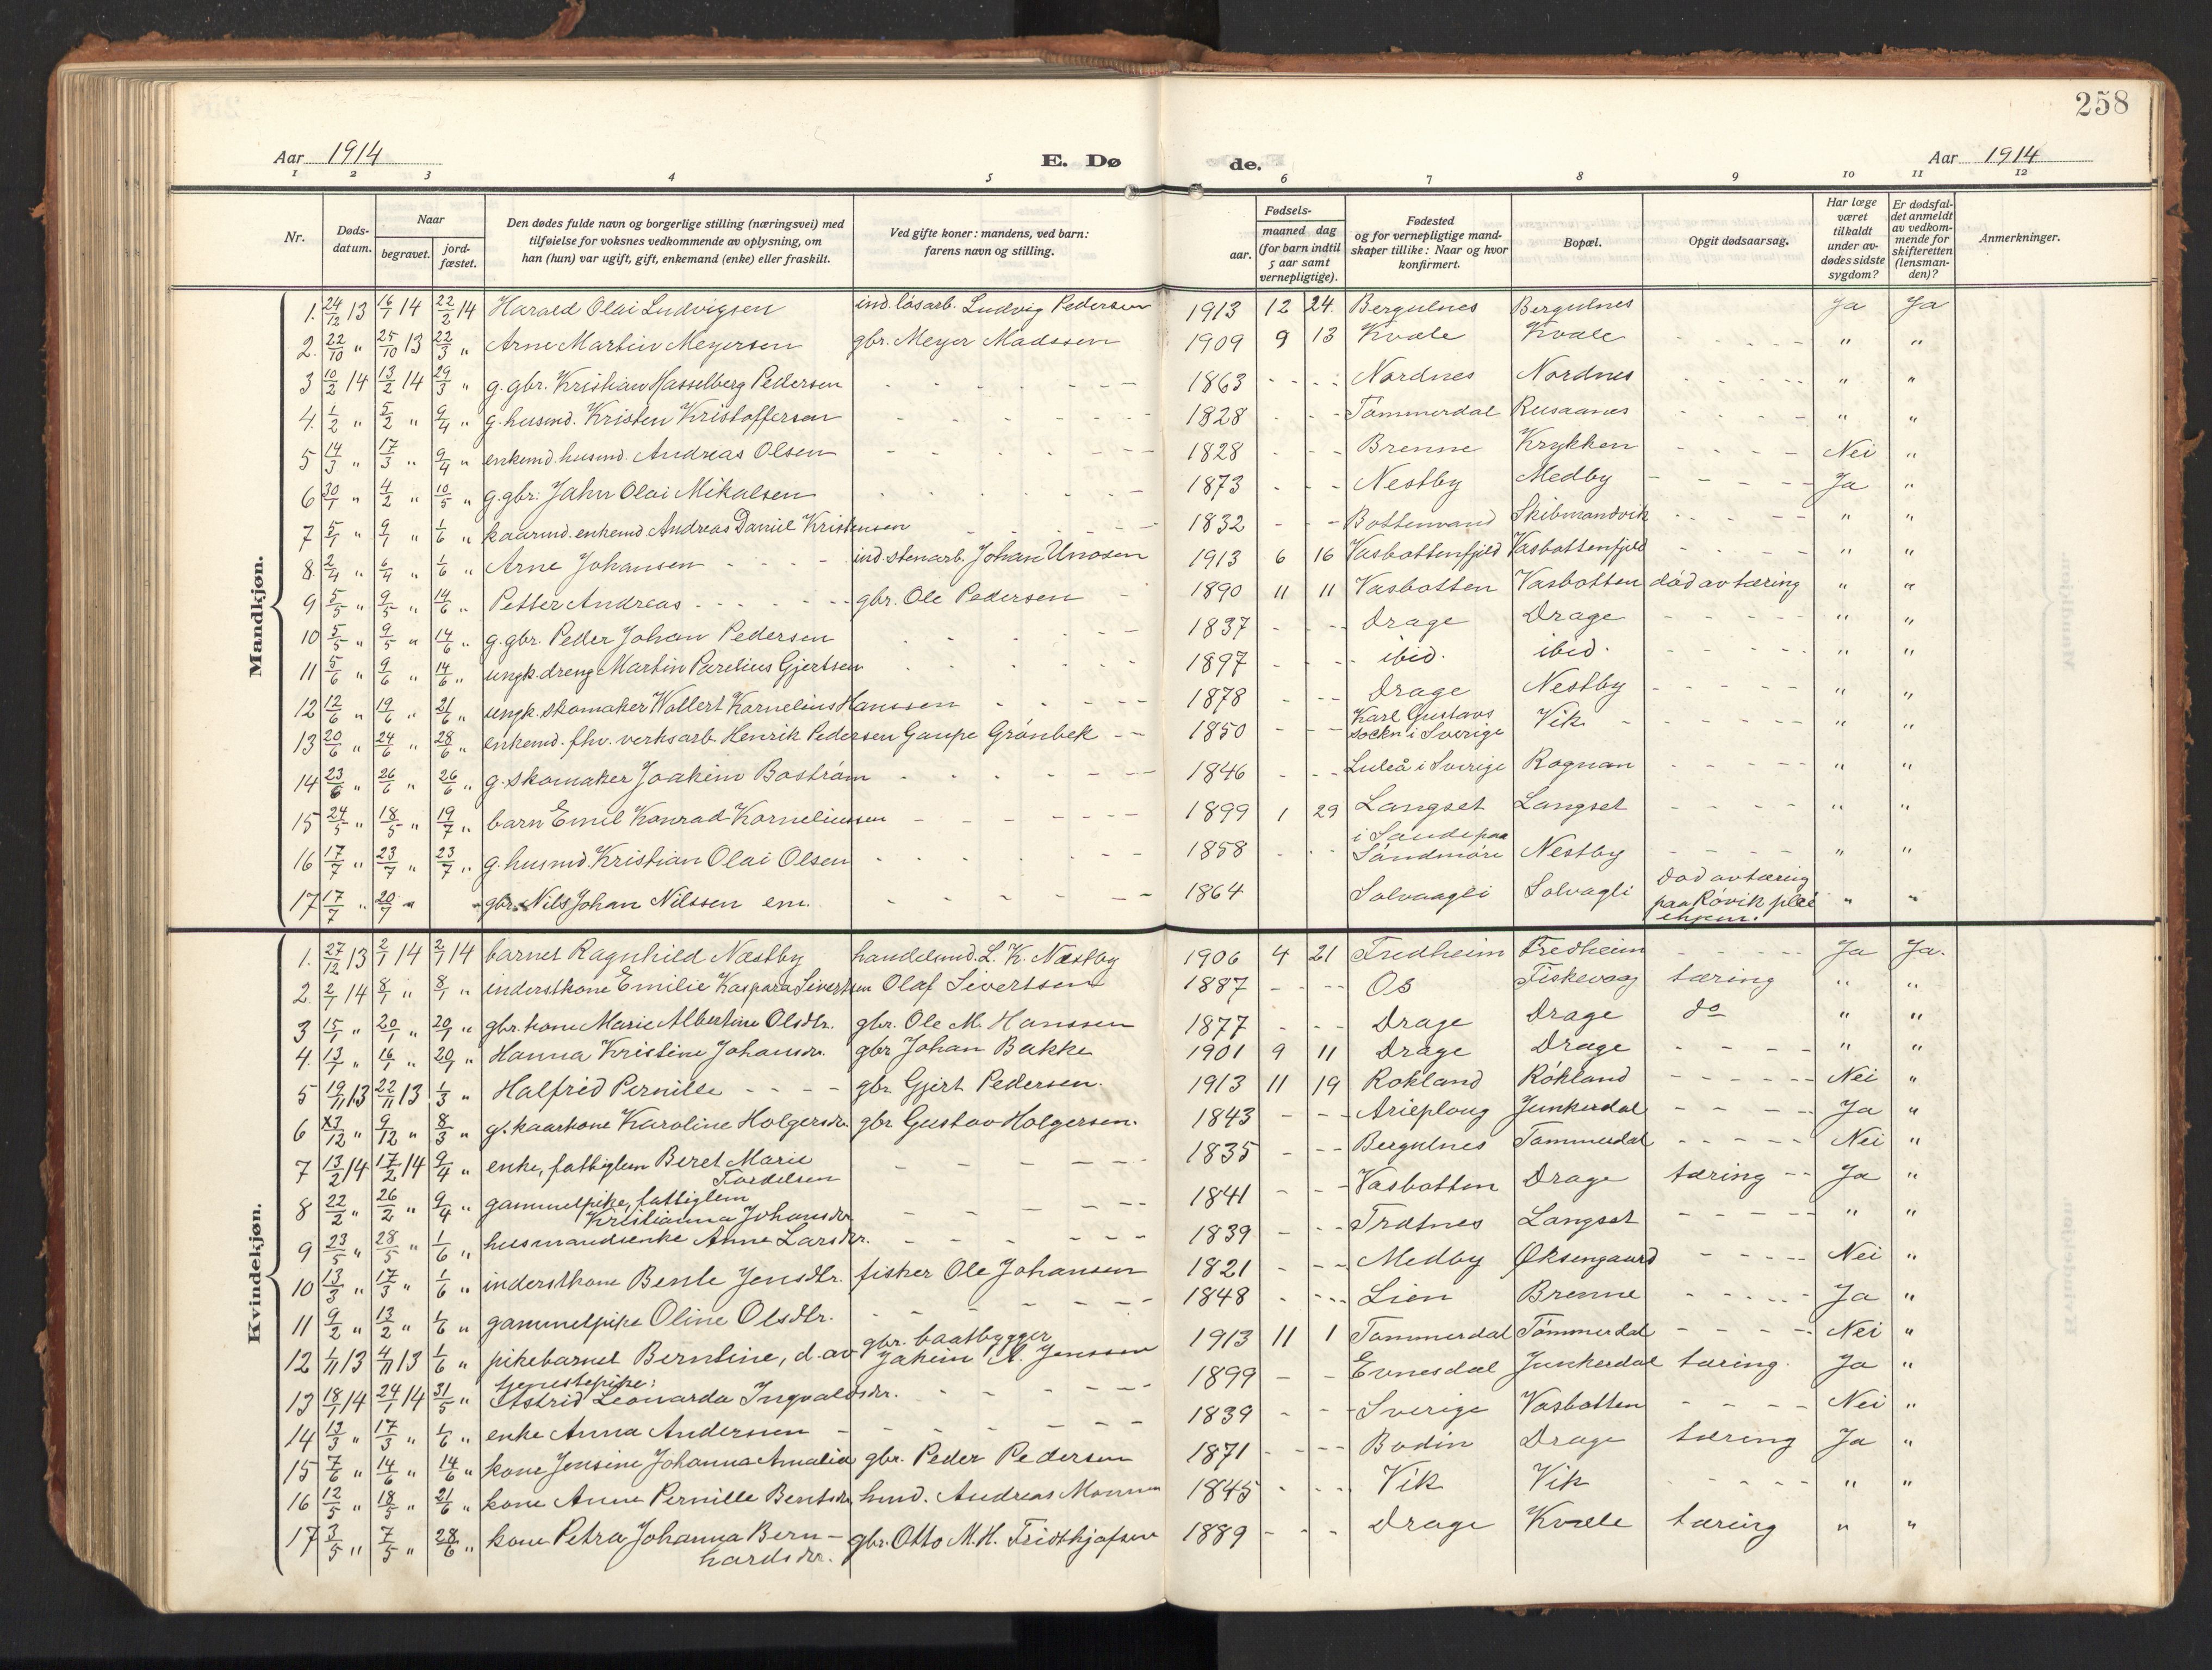 258
Aar 1914 E. Dø de. Aar 1914
1 2 3 4 5 6 7 8 9 10 11 12
Nr. Døds-datum. Naar begravet. jord-fæstet. Den dødes fulde navn og borgerlige stilling (næringsvei) med tilføielse for voksnes vedkommende av oplysning, om han (hun) var ugift, gift, enkemand (enke) eller fraskilt. Ved gifte koner: mandens, ved barn: farens navn og stilling. Fødsels- aar. maaned dag (for barn indtil 5 aar samt vernepligtige). Fødested og for vernepligtige mandskaper tillike: Naar og hvor konfirmert. Bopæl. Opgit dødsaarsag. Har læge været tilkaldt under avdødes sidste sygdom? Er dødsfaldet anmeldt av vedkommende for skifteretten (lensmanden)? Anmerkninger.
Mandkjøn.
1. 24/12 13 16/1 14 22/2 14 Harald Olai Ludvigsen ind. løsarb. Ludvig Pedersen 1913 12 24. Bergulnes Bergulnes Ja Ja
2. 22/10 " 25/10 13 22/3 " Arne Martin Meyersen gbr. Meyer Madssen 1909 9 13 Kvæle Kvale " "
3 10/2 14 13/2 14 29/3 " g. gbr. Kristian Hasselberg Pedersen 1863 Nordnes Nordnes " "
4. 1/2 " 5/2 " 9/4 " g. husmd. Kristen Kristoffersen 1828 Tømmerdal Rusaanes " "
5 14/3 " 17/3 " 9/4 " enkemd. husmd. Andreas Olsen 1828 Brenne Krykken Nei "
6 30/1 " 4/2 " 10/5 " g. gbr. Jahn Olai Mikalsen 1873 Nestby Medby Ja "
7 5/1 " 9/1 " 1/6 " kaarmd. enkemd Andreas Daniel Kristensen 1832 Bottenvand Skibmandvik " "
8. 2/4 " 6/4 " 1/6 " Arne Johansen ind. stenarb. Johan Unosen 1913 6 16 Vasbottenfjeld Vasbottenfjeld " "
9 5/5 " 9/5 " 14/6 " Petter Andreas gbr. Ole Pedersen 1890 11 11 Vasbotten Vasbotten død av tæring " "
10 5/5 " 9/5 " 14/6 " g. gbr. Peder Johan Pedersen 1837 Drage Drage " "
11 5/6 " 9/6 " 14/6 " ungk. dreng Martin Parelius Gjertsen 1897 ibid. ibid. " "
12 12/6 " 19/6 " 21/6 " ungk. skomaker Wollert Kornelius Hanssen 1878 Drage Nestby " "
13 20/6 " 24/6 " 28/6 " enkemd. fhv. verksarb. Henrik Pedersen Gaupe Grønbek 1850 Karl Gustavs sockn i Sverige Vik " "
14 23/6 " 26/6 " 26/6 " g. skomaker Joakim Boström 1846 Luleå i Sverige Rognan " "
15 24/5 " 18/5 " 19/7 " barn Emil Konrad Korneliussen 1899 1 29 Langset Langset " "
16 17/7 " 23/7 " 23/7 " g. husmd. Kristian Olai Olsen 1858 i Sande paa Søndmøre Nestby " "
17 17/7 " 20/7 " " gbr. Nils Johan Nilssen em. 1864 Solvaagli Solvagli Død av tæring paa Røvik pleiehjem. " "
Kvindekjøn.
1. 27/12 13 2/1 14 2/1 14 barnet Ragnhild Næstby handelsmd. L. K. Næstby 1906 4 21 Fredheim Fredheim Ja Ja.
2. 2/1 14 8/1 " 8/1 " inderstkone Emilie Kaspara Sivertsen Olaf Sivertsen 1887 Os Fiskevaag tæring " "
3 15/1 " 20/1 " 20/1 " gbr. kone Marie Albertine Olsdtr. gbr. Ole M. Hanssen 1877 Drage Drage do " "
4. 13/1 " 16/1 " 20/1 " Hanna Kristine Johansdr. gbr Johan Bakke 1901 9 11 Drage Drage " "
5 19/11 13 22/11 13 1/3 " Halfrid Pernille gbr. Gjert Pedersen. 1913 11 19 Rokland Røkland Nei "
6 3/12 " 9/12 " 8/3 " g. kaarkone Karoline Holgersdr. gbr Gustav Holgersen. 1843 Arieploug Junkerdal Ja "
7 13/2 14 17/2 14 9/4 " enke, fattiglem Beret Marie Tordelsen 1835 Bergulnes Tømmerdal Nei "
8 22/2 " 26/2 " 9/4 " gammelpike, fattiglem Kristianna Johansdr 1841 Vasbotten Drage tæring Ja "
9 23/5 " 28/5 " 1/6 " husmandsenke Anne Larsdtr. 1839 Trætnes Langset " "
10 13/3 " 17/3 " 1/6 " inderstkone Bente Jensdtr. fisker Ole Johansen 1821 Medby Øksengaard Nei "
11 9/2 " 13/2 " 1/6 " gammelpike Oline Olsdtr. 1848 Lien Brenne Ja "
12 1/11 13 4/11 13 1/6 " pikebarnet Berntine, d. av gbr. baatbygger Jakim A. Jenssen 1913 11 1 Tømmerdal Tømmerdal Nei "
13 18/1 14 24/1 14 31/5 " tjenestepike: Astrid Leonarda Ingvaldsdr. 1899 Evnesdal Junkerdal tæring. Ja "
14 13/3 " 17/3 " 1/6 " enke Anna Andersen 1839 Sverige Vasbotten Nei "
15 7/6 " 14/6 " 14/6 " kone Jensine Johanna Amalia gbr. Peder Pedersen 1871 Bodin Drage tæring Ja "
16 12/5 " 18/5 " 21/6 " kone Anne Pernille Bentsdr. hmd. Andreas Monsen 1845 Vik Vik " "
17 3/5 " 7/5 " 28/6 " kone Petra Johanna Bernhardsdr. gbr. Otto M. H. Fridthjofsen 1889 Drage Kvæle tæring " "